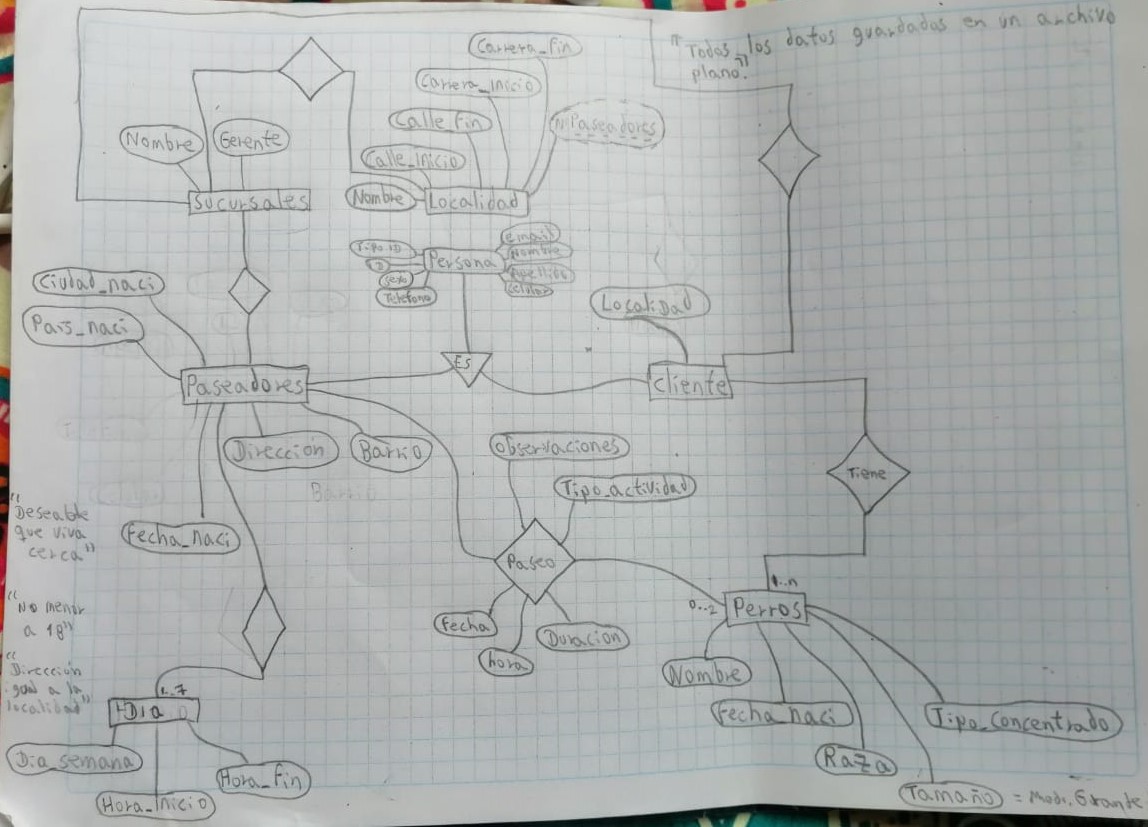 "Todos los datos guardados en un archivo
plano."
Carrera_fin
Carrera_Inicio
Calle_fin
N_Paseadores
Calle_Inicio
Nombre
Gerente
Nombre
Sucursales
Localidad
Tipo ID
ID
Sexo
Telefono
Persona
email
Nombre
Apellido
Celular
Ciudad_naci
Pais_naci
Localidad
ES
Paseadores
Cliente
Dirección
Barrio
Observaciones
Tipo_actividad
Tiene
Barrio
"Deseable
que viva
cerca"
Fecha_naci
Paseo
1..n
0..2
Perros
"No menor
a 18"
Fecha
hora
Duracion
Nombre
"Dirección
igual a la
localidad"
1..7
Dia
Fecha_naci
Tipo_Concentrado
Dia_semana
Hora_fin
Hora_Inicio
Raza
Tamaño = Modi. Grante